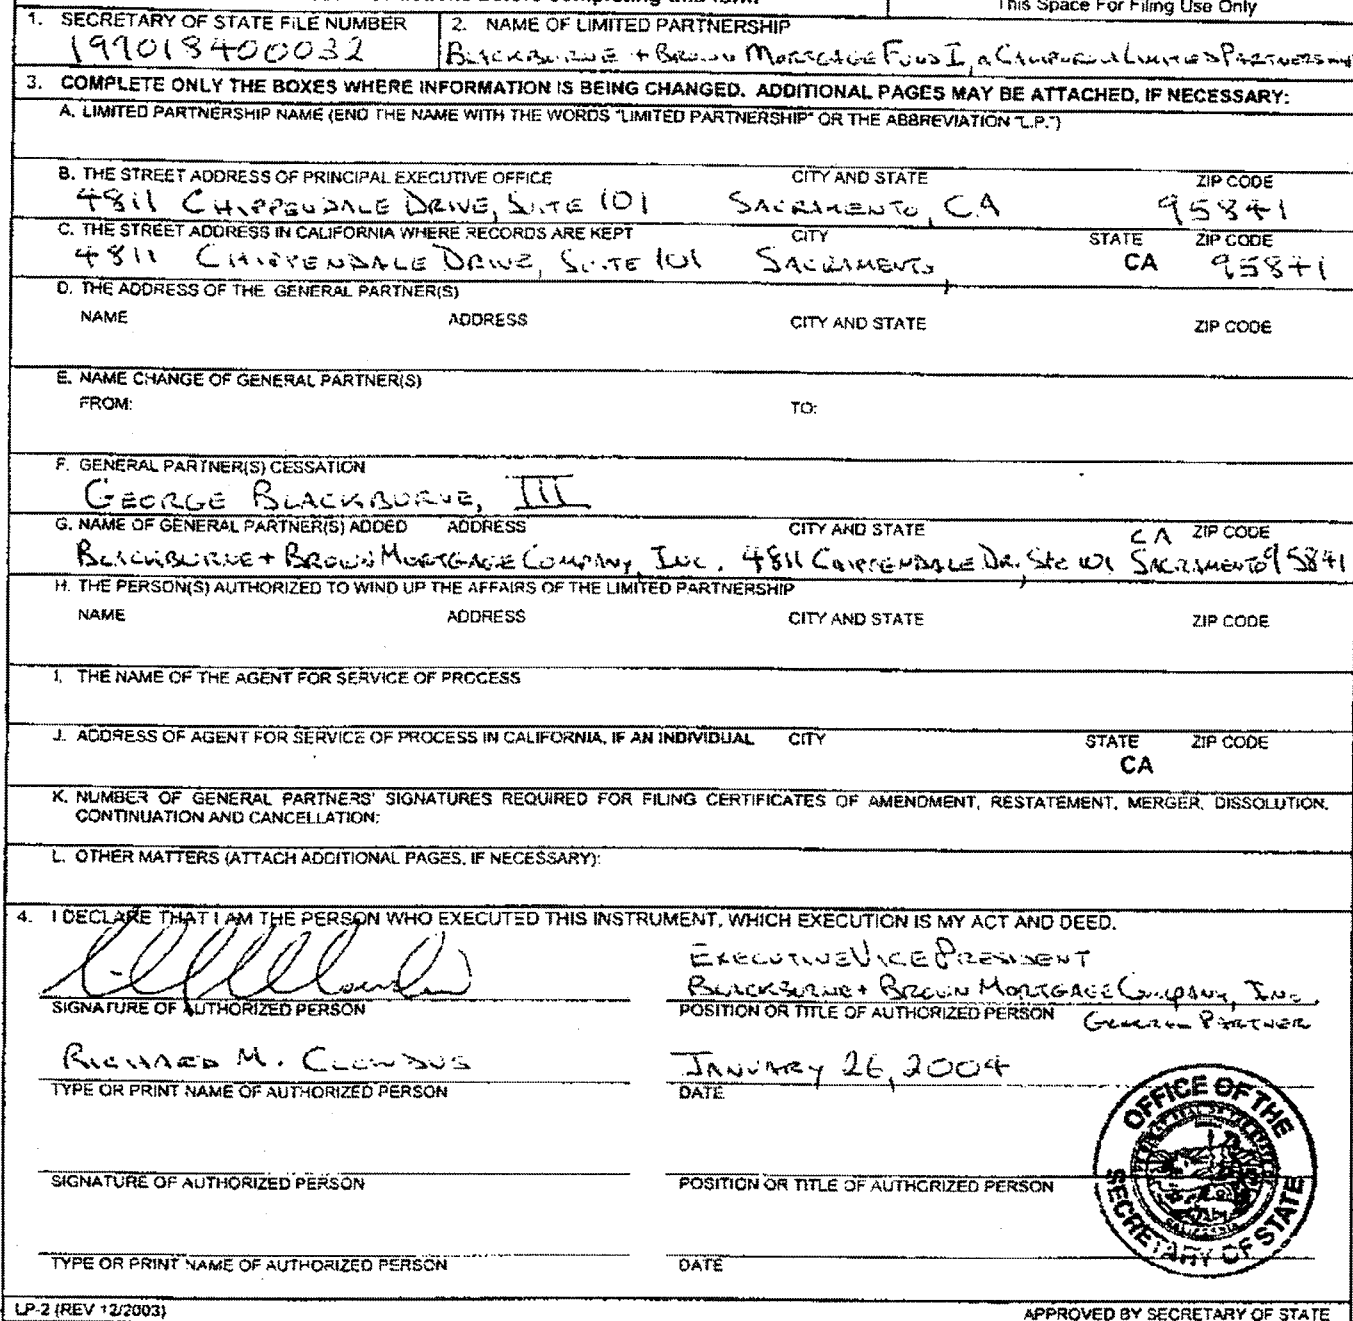 This Space For Filing Use Only
1. SECRETARY OF STATE FILE NUMBER 2. NAME OF LIMITED PARTNERSHIP
199018400032 BLACKBURNE + BROWN MORTGAGE FUND I, A CALIFORNIA LIMITED PARTNERSHIP
3. COMPLETE ONLY THE BOXES WHERE INFORMATION IS BEING CHANGED. ADDITIONAL PAGES MAY BE ATTACHED, IF NECESSARY:
A. LIMITED PARTNERSHIP NAME (END THE NAME WITH THE WORDS "LIMITED PARTNERSHIP" OR THE ABBREVIATION "L.P.")
B. THE STREET ADDRESS OF PRINCIPAL EXECUTIVE OFFICE CITY AND STATE ZIP CODE
4811 CHIPPENDALE DRIVE, SUITE 101 SACRAMENTO, CA 95841
C. THE STREET ADDRESS IN CALIFORNIA WHERE RECORDS ARE KEPT CITY STATE ZIP CODE
4811 CHIPPENDALE DRIVE, SUITE 101 SACRAMENTO, CA 95841
D. THE ADDRESS OF THE GENERAL PARTNER(S)
NAME ADDRESS CITY AND STATE ZIP CODE
E. NAME CHANGE OF GENERAL PARTNER(S)
FROM: TO:
F. GENERAL PARTNER(S) CESSATION
GEORGE BLACKBURNE, III
G. NAME OF GENERAL PARTNER(S) ADDED ADDRESS CITY AND STATE CA ZIP CODE
BLACKBURNE + BROWN MORTGAGE COMPANY, INC. 4811 CHIPPENDALE DR. Ste 101, SACRAMENTO 95841
H. THE PERSON(S) AUTHORIZED TO WIND UP THE AFFAIRS OF THE LIMITED PARTNERSHIP
NAME ADDRESS CITY AND STATE ZIP CODE
I. THE NAME OF THE AGENT FOR SERVICE OF PROCESS
J. ADDRESS OF AGENT FOR SERVICE OF PROCESS IN CALIFORNIA, IF AN INDIVIDUAL CITY STATE ZIP CODE
CA
K. NUMBER OF GENERAL PARTNERS' SIGNATURES REQUIRED FOR FILING CERTIFICATES OF AMENDMENT, RESTATEMENT, MERGER, DISSOLUTION,
CONTINUATION AND CANCELLATION:
L. OTHER MATTERS (ATTACH ADDITIONAL PAGES, IF NECESSARY):
4. I DECLARE THAT I AM THE PERSON WHO EXECUTED THIS INSTRUMENT, WHICH EXECUTION IS MY ACT AND DEED.
EXECUTIVE VICE PRESIDENT
BLACKBURNE + BROWN MORTGAGE COMPANY, INC.
SIGNATURE OF AUTHORIZED PERSON POSITION OR TITLE OF AUTHORIZED PERSON GENERAL PARTNER
RICHARD M. CLOWDUS JANUARY 26, 2004
TYPE OR PRINT NAME OF AUTHORIZED PERSON DATE
OFFICE OF THE
SECRETARY OF STATE
CALIFORNIA
SIGNATURE OF AUTHORIZED PERSON POSITION OR TITLE OF AUTHORIZED PERSON
TYPE OR PRINT NAME OF AUTHORIZED PERSON DATE
LP-2 (REV 12/2003) APPROVED BY SECRETARY OF STATE